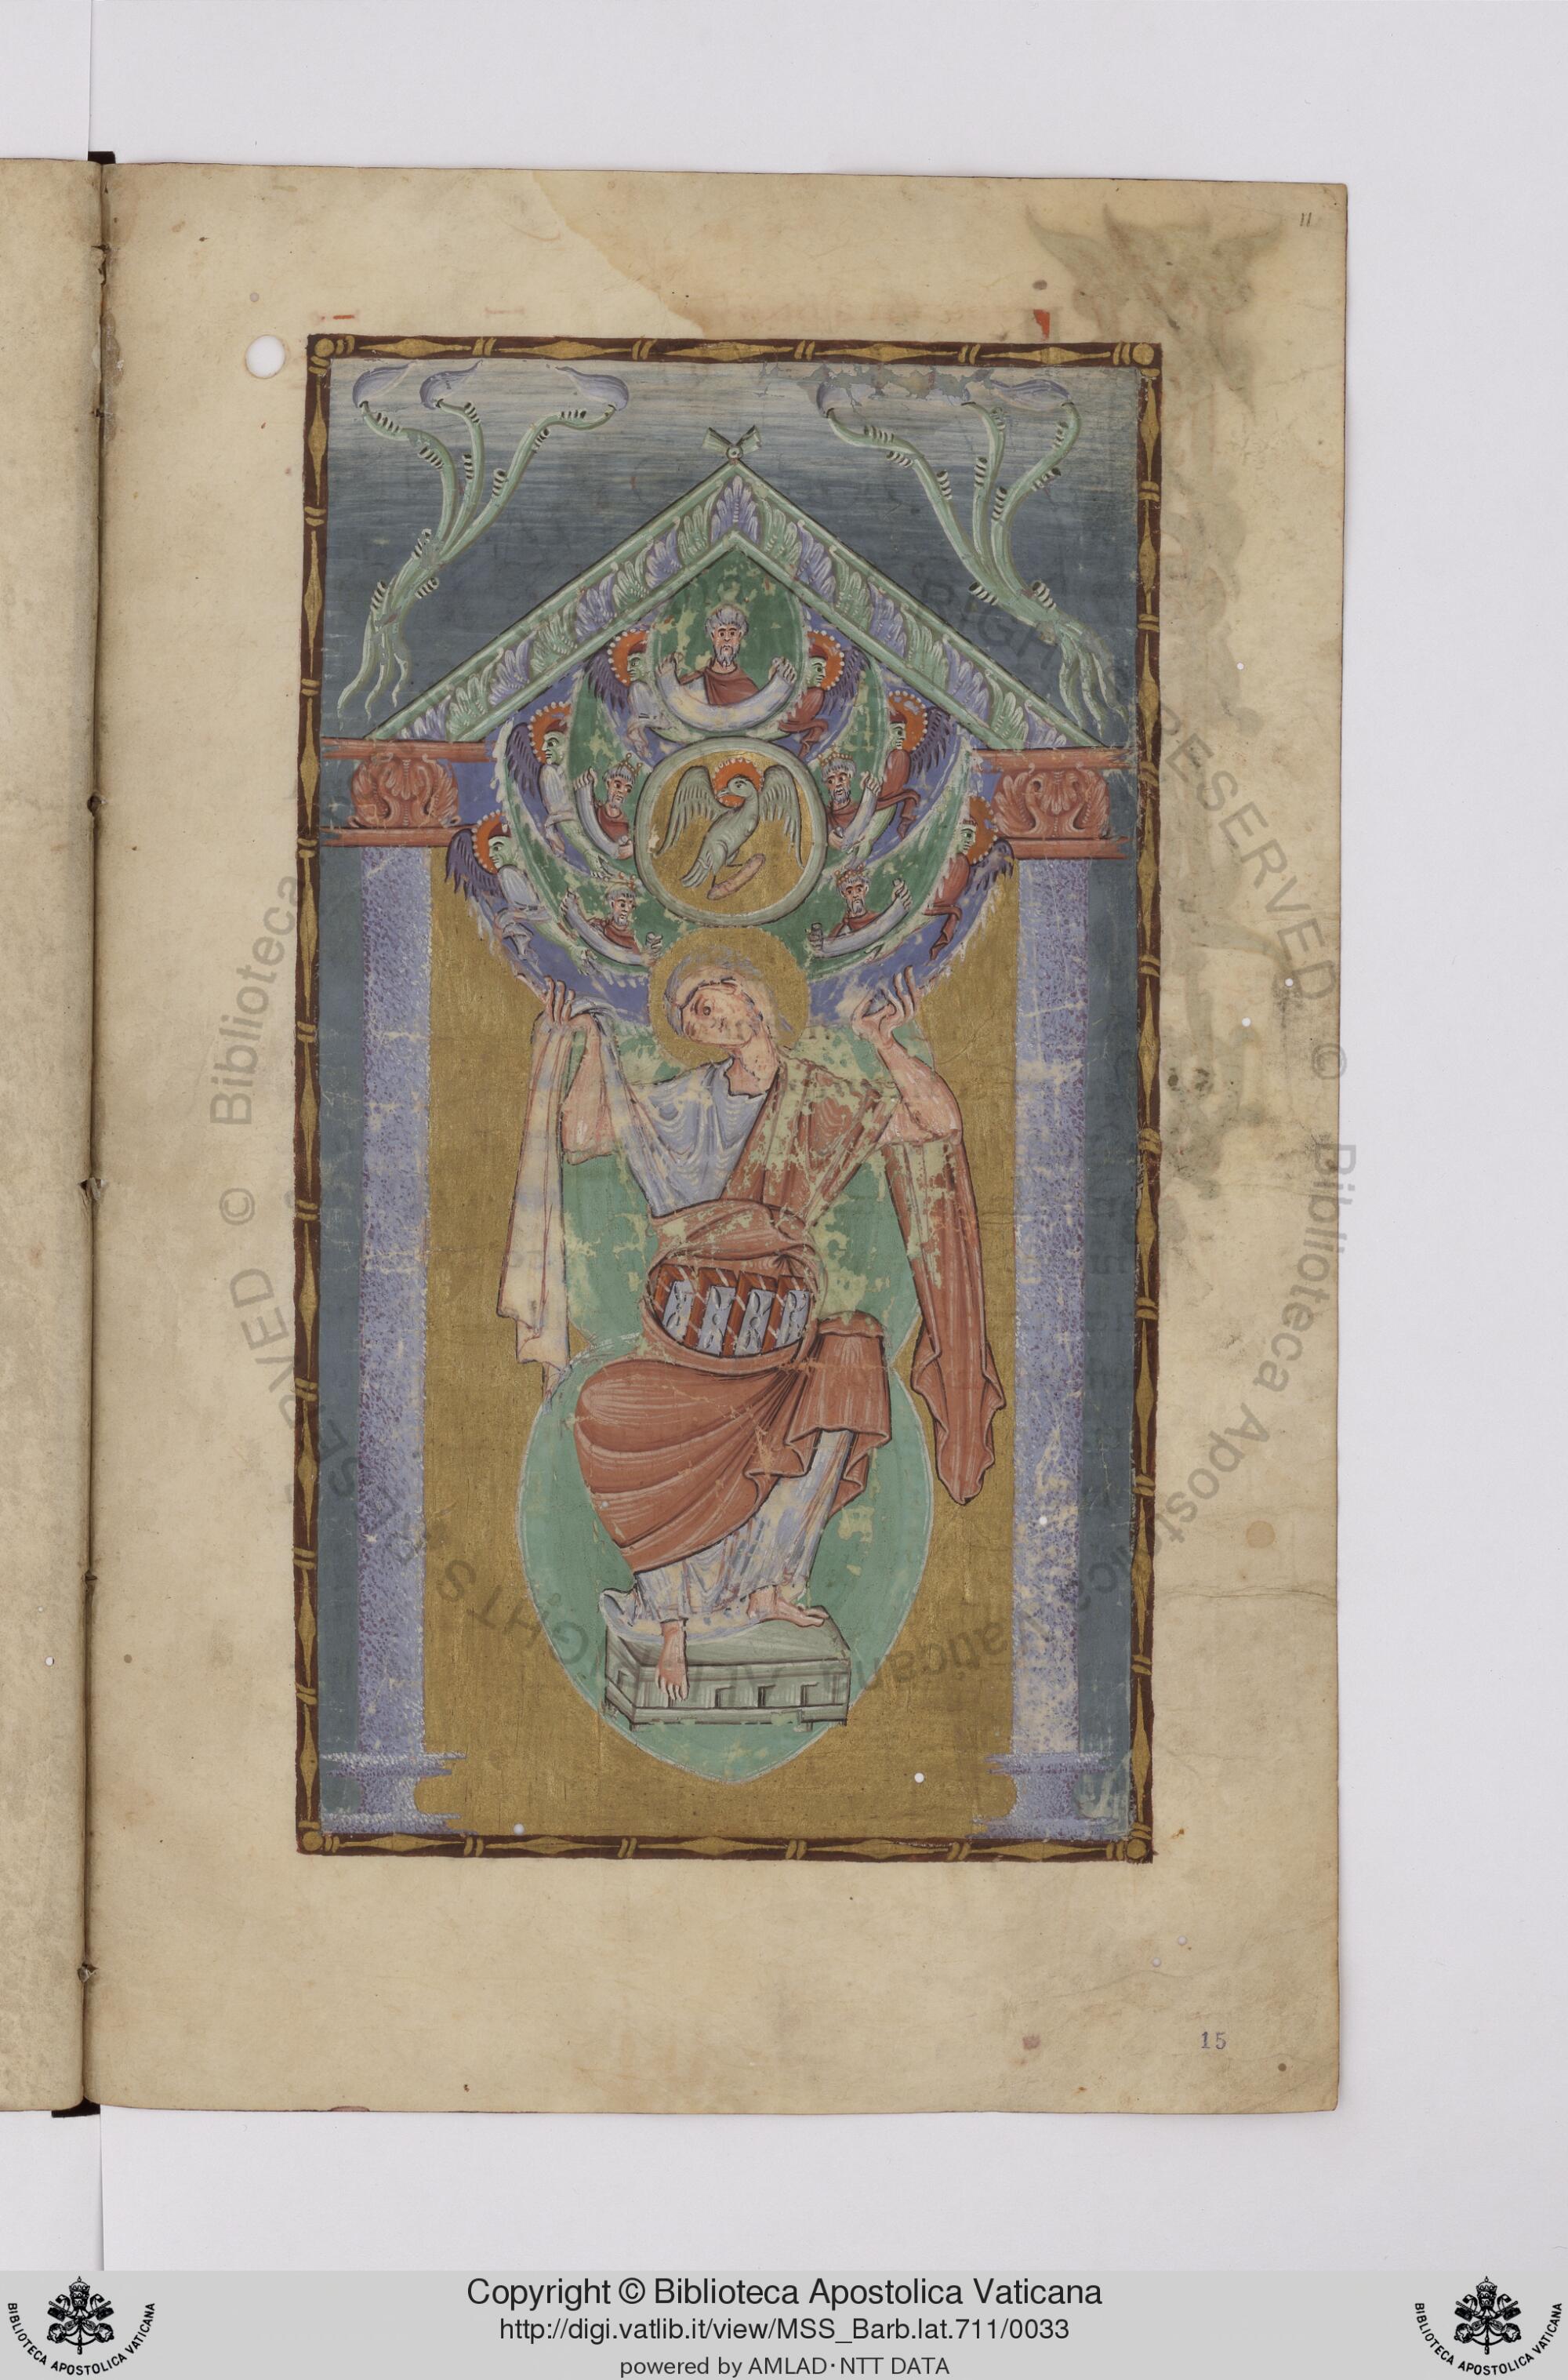 11
15
© Biblioteca Apostolica Vaticana ALL RIGHTS RESERVED
© Biblioteca Apostolica Vaticana ALL RIGHTS RESERVED
Copyright © Biblioteca Apostolica Vaticana
http://digi.vatlib.it/view/MSS_Barb.lat.711/0033
powered by AMLAD·NTT DATA
BIBLIOTECA APOSTOLICA VATICANA
BIBLIOTECA APOSTOLICA VATICANA